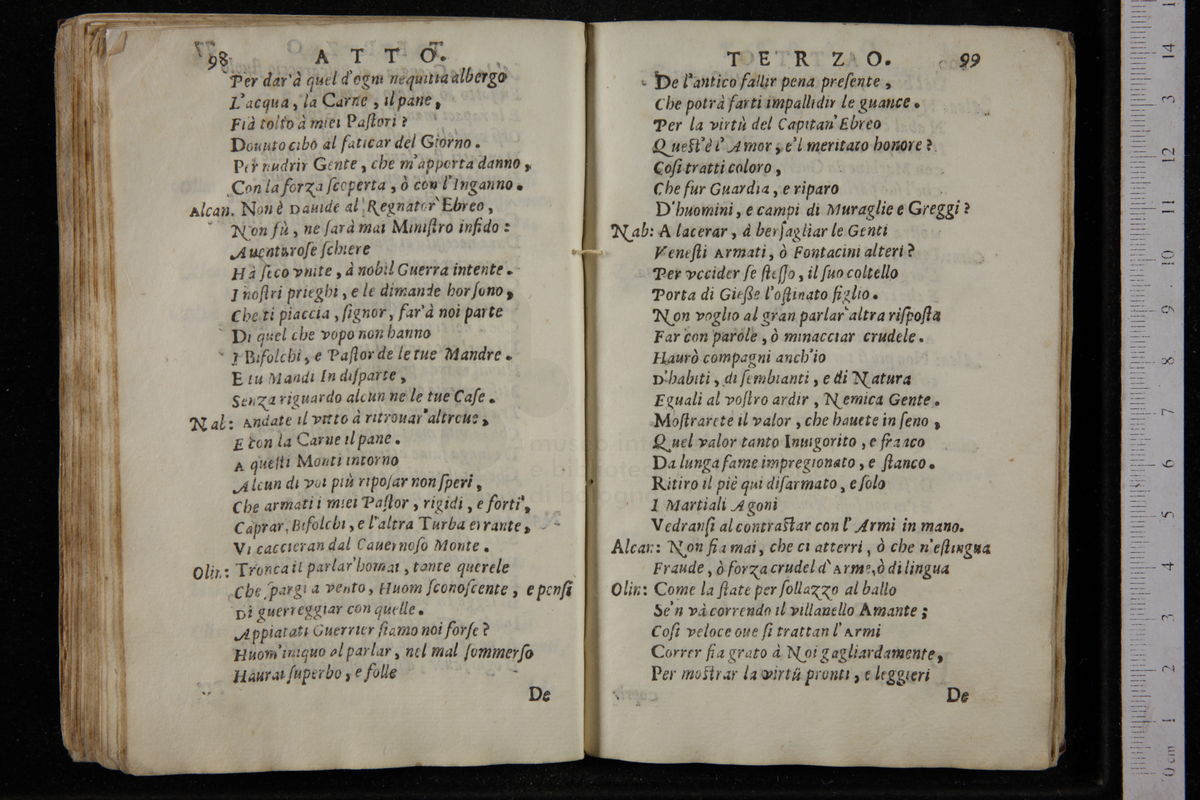 98 ATTO.
Per dar'à quel d'ogni nequitia albergo
L'acqua, la Carne, il pane,
Fia tolto à miei Paſtori?
Douuto cibo al faticar del Giorno.
Per nudrir Gente, che m'apporta danno,
Con la forza ſcoperta, ò con l'Inganno.
Alcan. Non è Dauide al Regnator Ebreo,
Non fù, ne ſarà mai Miniſtro infido:
Auenturoſe ſchiere
Hà ſeco vnite, à nobil Guerra intente.
I noſtri prieghi, e le dimande hor ſono,
Che ti piaccia, ſignor, far'à noi parte
Di quel che vopo non hanno
I Bifolchi, e Paſtor de le tue Mandre.
E tu Mandi In diſparte,
Senza riguardo alcun ne le tue Caſe.
Nal: Andate il vitto à ritrouar'altroue,
E con la Carne il pane.
A queſti Monti intorno
Alcun di voi più ripoſar non ſperi,
Che armati i miei Paſtor, rigidi, e forti,
Caprar, Bifolchi, e l'altra Turba errante,
Vi caccieran dal Cauernoſo Monte.
Olin: Tronca il parlar'homai, tante querele
Che ſpargi a vento, Huom ſconoſcente, e penſi
Di guerreggiar con quelle.
Appiatati Guerrier ſiamo noi forſe?
Huom'iniquo al parlar, nel mal ſommerſo
Haurai ſuperbo, e folle
De
TERZO. 99
De l'antico fallir pena preſente,
Che potrà farti impallidir le guance.
Per la virtù del Capitan' Ebreo
Queſt'è l'Amor, e'l meritato honore?
Coſi tratti coloro,
Che fur Guardia, e riparo
D'huomini, e campi di Muraglie e Greggi?
Nab: A lacerar, à berſagliar le Genti
Veneſti Armati, ò Fontacini alteri?
Per vccider ſe ſteſſo, il ſuo coltello
Porta di Gieſſe l'oſtinato figlio.
Non voglio al gran parlar'altra riſpoſta
Far con parole, ò minacciar crudele.
Haurò compagni anch'io
D'habiti, di ſembianti, e di Natura
Eguali al voſtro ardir, Nemica Gente.
Moſtrarete il valor, che hauete in ſeno,
Quel valor tanto Inuigorito, e franco
Da lunga fame impregionato, e ſtanco.
Ritiro il piè qui diſarmato, e ſolo
I Martiali Agoni
Vedranſi al contraſtar con l'Armi in mano.
Alcan: Non fia mai, che ci atterri, ò che n'eſtingua
Fraude, ò forza crudel d'Arme, ò di lingua
Olin: Come la ſtate per ſollazzo al ballo
Se'n và correndo il villanello Amante;
Coſi veloce oue ſi trattan l'Armi
Correr fia grato à Noi gagliardamente,
Per moſtrar la virtù pronti, e leggieri
De